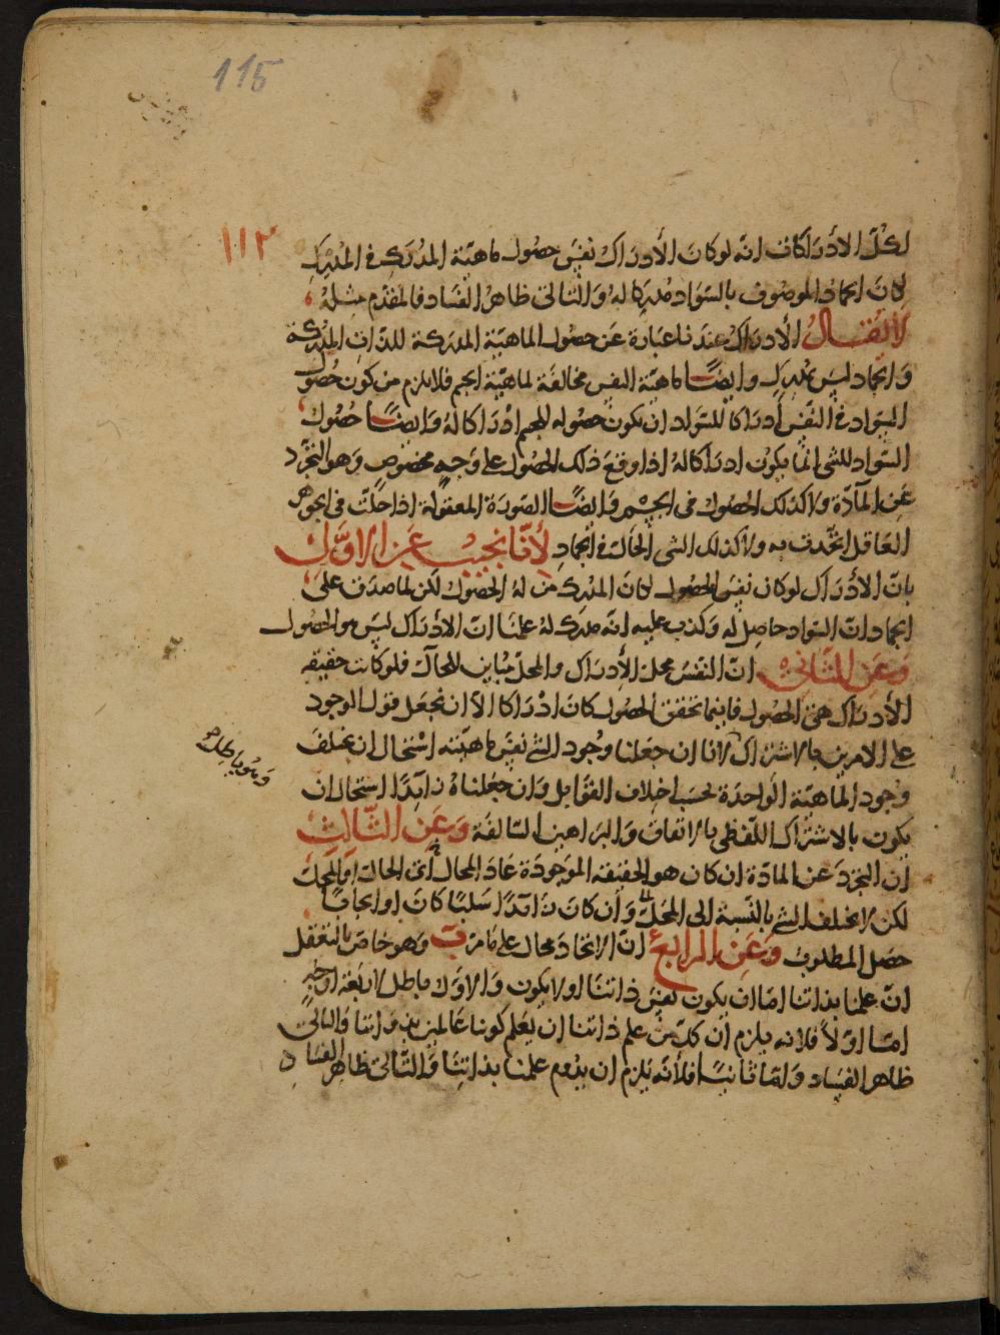 115
١١٣
لكل الادراكات انه لو كان الادراك نفس حصول ماهية المدرك في المدرك
لكان الجماد الموصوف بالسواد مدركا له والتالى ظاهر الفساد فالمقدم مثله
لا يقال الادراك عندنا عبارة عن حصول الماهية المدركة للذات المدركة
والجماد ليس بمدرك وايضًا ماهية النفس مخالفة لماهية الجسم فلا يلزم من كون حصول
السواد في النفس ادراكا للسواد ان يكون حصوله للجسم ادراكا له وايضًا حصول
السواد للشى انما يكون ادراكا له اذا وقع ذلك الحصول على وجه مخصوص وهو التجرد
عن المادة ولا كذلك الحصول فى الجسم وايضًا الصورة المعقولة اذا حلت فى الجوهر
العاقل اتحدت به ولا كذلك الشى الحال فى الجماد لأنا نجيب عن الاول
بان الادراك لو كان نفس الحصول لكان المدرك من له الحصول لكن لما صدق على
الجماد ان السواد حاصل له وكذب عليه انه مدرك له علمنا ان الادراك ليس هو الحصول
وعن الثانى ان النفس محل الادراك والمحل مباين للحال فلو كانت حقيقه
الادراك هى الحصول فاينما تحقق الحصول كان ادراكا الا ان نجعل قول الوجود
على الامرين بالاشتراك لانا ان جعلنا وجود الشئ نفس ماهيته استحال ان يختلف
وجود الماهية الواحدة بحسب اختلاف القوابل وان جعلناه زايدًا استحال ان
يكون بالاشتراك اللفظى بالاتفاق والبراهين السالفة وعن الثالث
وهو باطل
ان التجرد عن المادة ان كان هو الحقيقه الموجودة عاد المحال اى الحال او المحل
لكن لا يختلف الشئ بالنسبة الى المحل وان كان زائدًا سلبًا كان او ايجابًا
حصل المطلوب وعن الرابع ان الاتحاد محال على ما مر ب وهو خاص بالتعقل
ان علمنا بذاتنا اما ان يكون نفس ذاتنا او لا يكون والاول باطل لاربعة اوجه
اما اولًا فلانه يلزم ان كل من علم ذاتنا ان يعلم كوننا عالمين بذواتنا والتالى
ظاهر الفساد واما ثانيًا فلأنه يلزم ان يدوم علمنا بذاتنا والتالى ظاهر الفساد